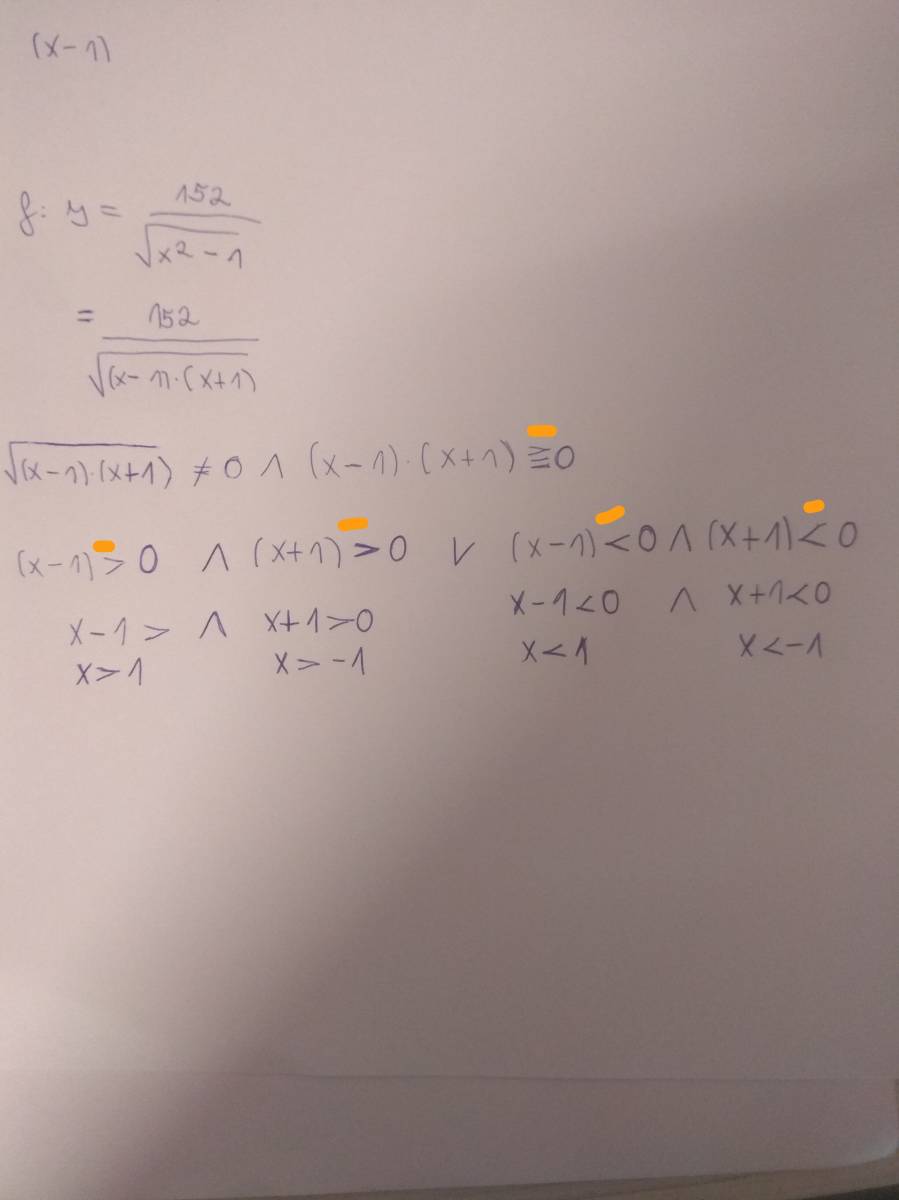 (x-1)
f: y = 152 / √(x² - 1)
= 152 / √((x-1)·(x+1))
√((x-1)·(x+1)) ≠ 0 ∧ (x-1)·(x+1) ≧ 0
(x-1) > 0 ∧ (x+1) > 0 ∨ (x-1) < 0 ∧ (x+1) < 0
x-1 > ∧ x+1 > 0 x-1 < 0 ∧ x+1 < 0
x > 1 x > -1 x < 1 x < -1